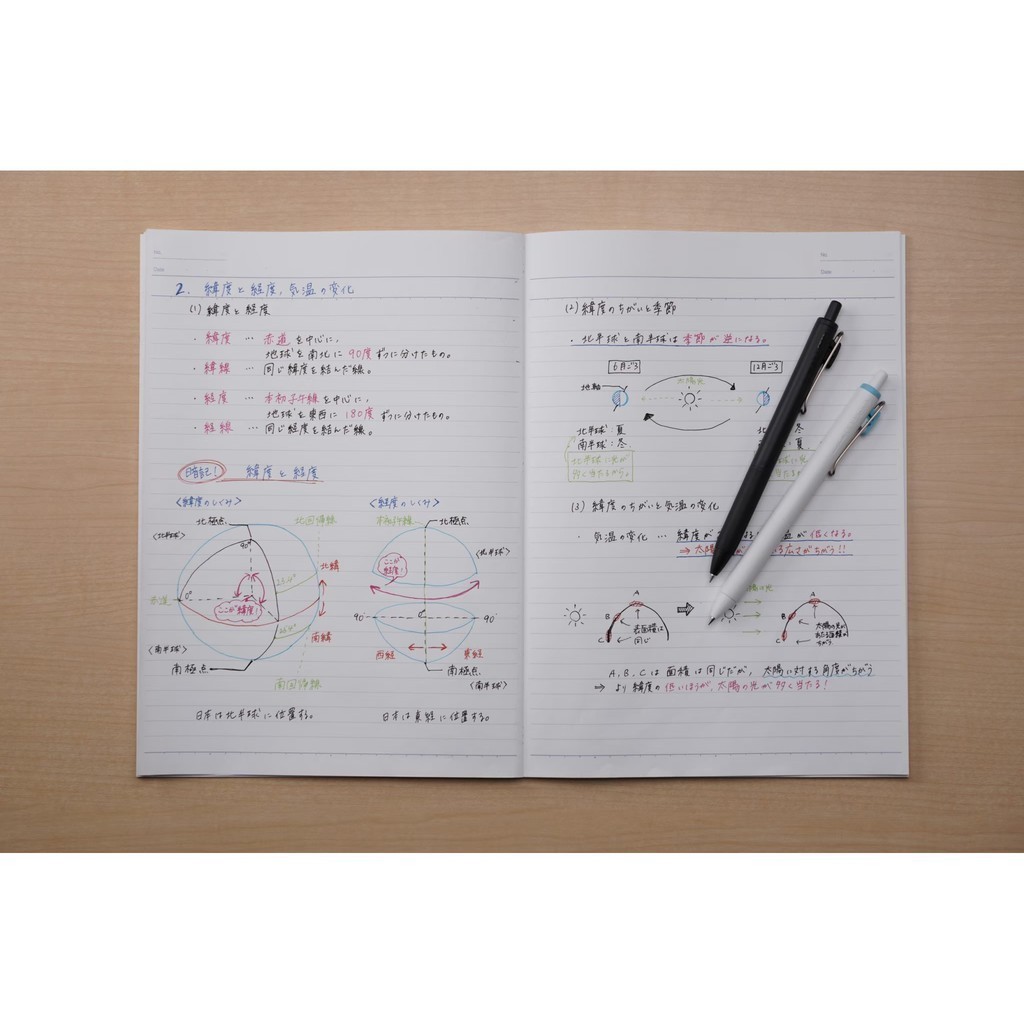 No.
Date
2. 緯度と経度、気温の変化
(1) 緯度と経度
・緯度 … 赤道を中心に、
地球を南北に90度ずつに分けたもの。
・緯線 … 同じ緯度を結んだ線。
・経度 … 本初子午線を中心に、
地球を東西に180度ずつに分けたもの。
・経線 … 同じ経度を結んだ線。
暗記! 緯度と経度
〈緯度のしくみ〉
北極点
北回帰線
〈北半球〉
90°
北緯
23.4°
赤道
0°
ここが緯度!
南緯
〈南半球〉
南極点
南回帰線
日本は北半球に位置する。
〈経度のしくみ〉
本初子午線
北極点
〈北半球〉
ここが経度!
90°
0°
90°
西経
東経
南極点
〈南半球〉
日本は東経に位置する。
No.
Date
(2) 緯度のちがいと季節
・北半球と南半球は季節が逆になる。
6月ごろ
12月ごろ
地軸
太陽光
北半球:夏
南半球:冬
北半球に光が
多く当たるから。
冬
夏
(3) 緯度のちがいと気温の変化
・気温の変化 … 緯度が
が低くなる。
⇒ 太陽
広さがちがう!!
A
B
C
表面積は
同じ
A
B
C
太陽の光が
あたる面積が
ちがう
A,B,Cは面積は同じだが、太陽に対する角度がちがう
⇒ より緯度の低いほうが、太陽の光が多く当たる!